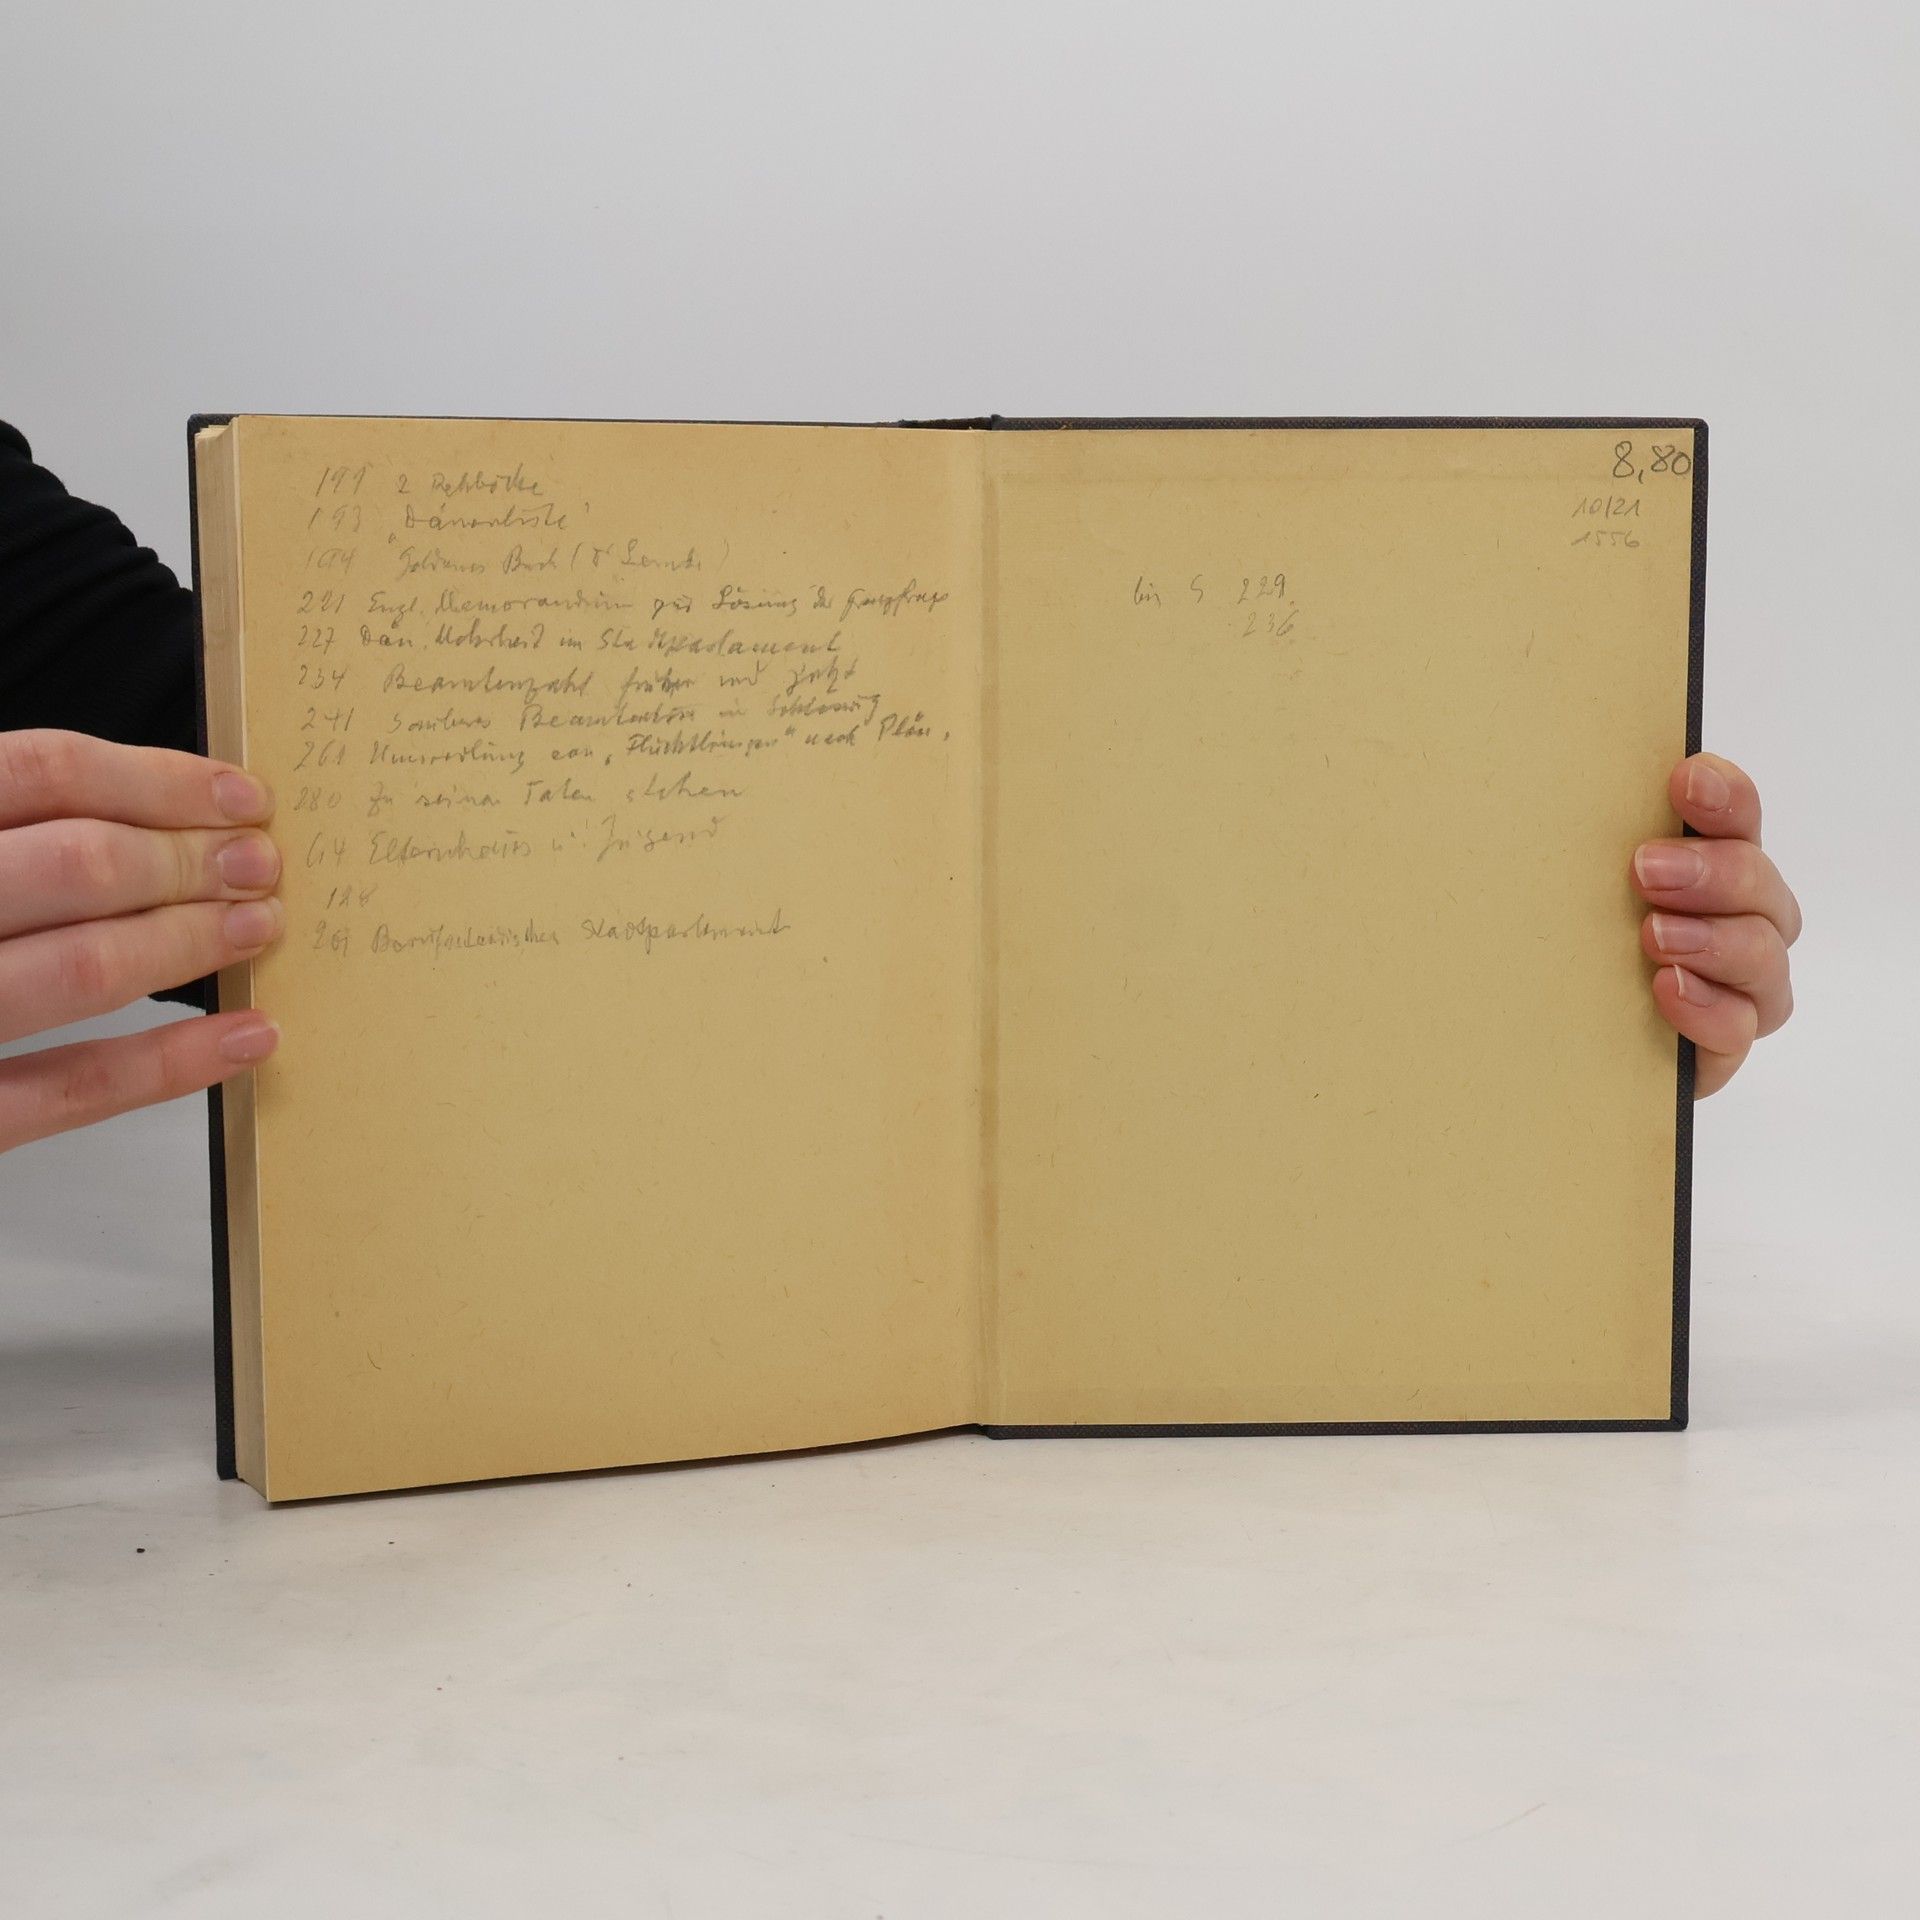 191 2 Rehböcke
193 "Dänenliste"
194 Goldenes Buch (
221 Engl. Memorandum zur Lösung der Grenzfrage
227 Dän. Mehrheit im Stadtparlament
234 Beamtenzahl früher und jetzt
241 Beamten in Schleswig
261 Umsiedlung von "Flüchtlingen" nach Plön,
280 Zu seinen Taten stehen
64 Elternhaus u. Jugend
128
261 Stadtparlament
8,80
10/21
1556
bis S 229
236